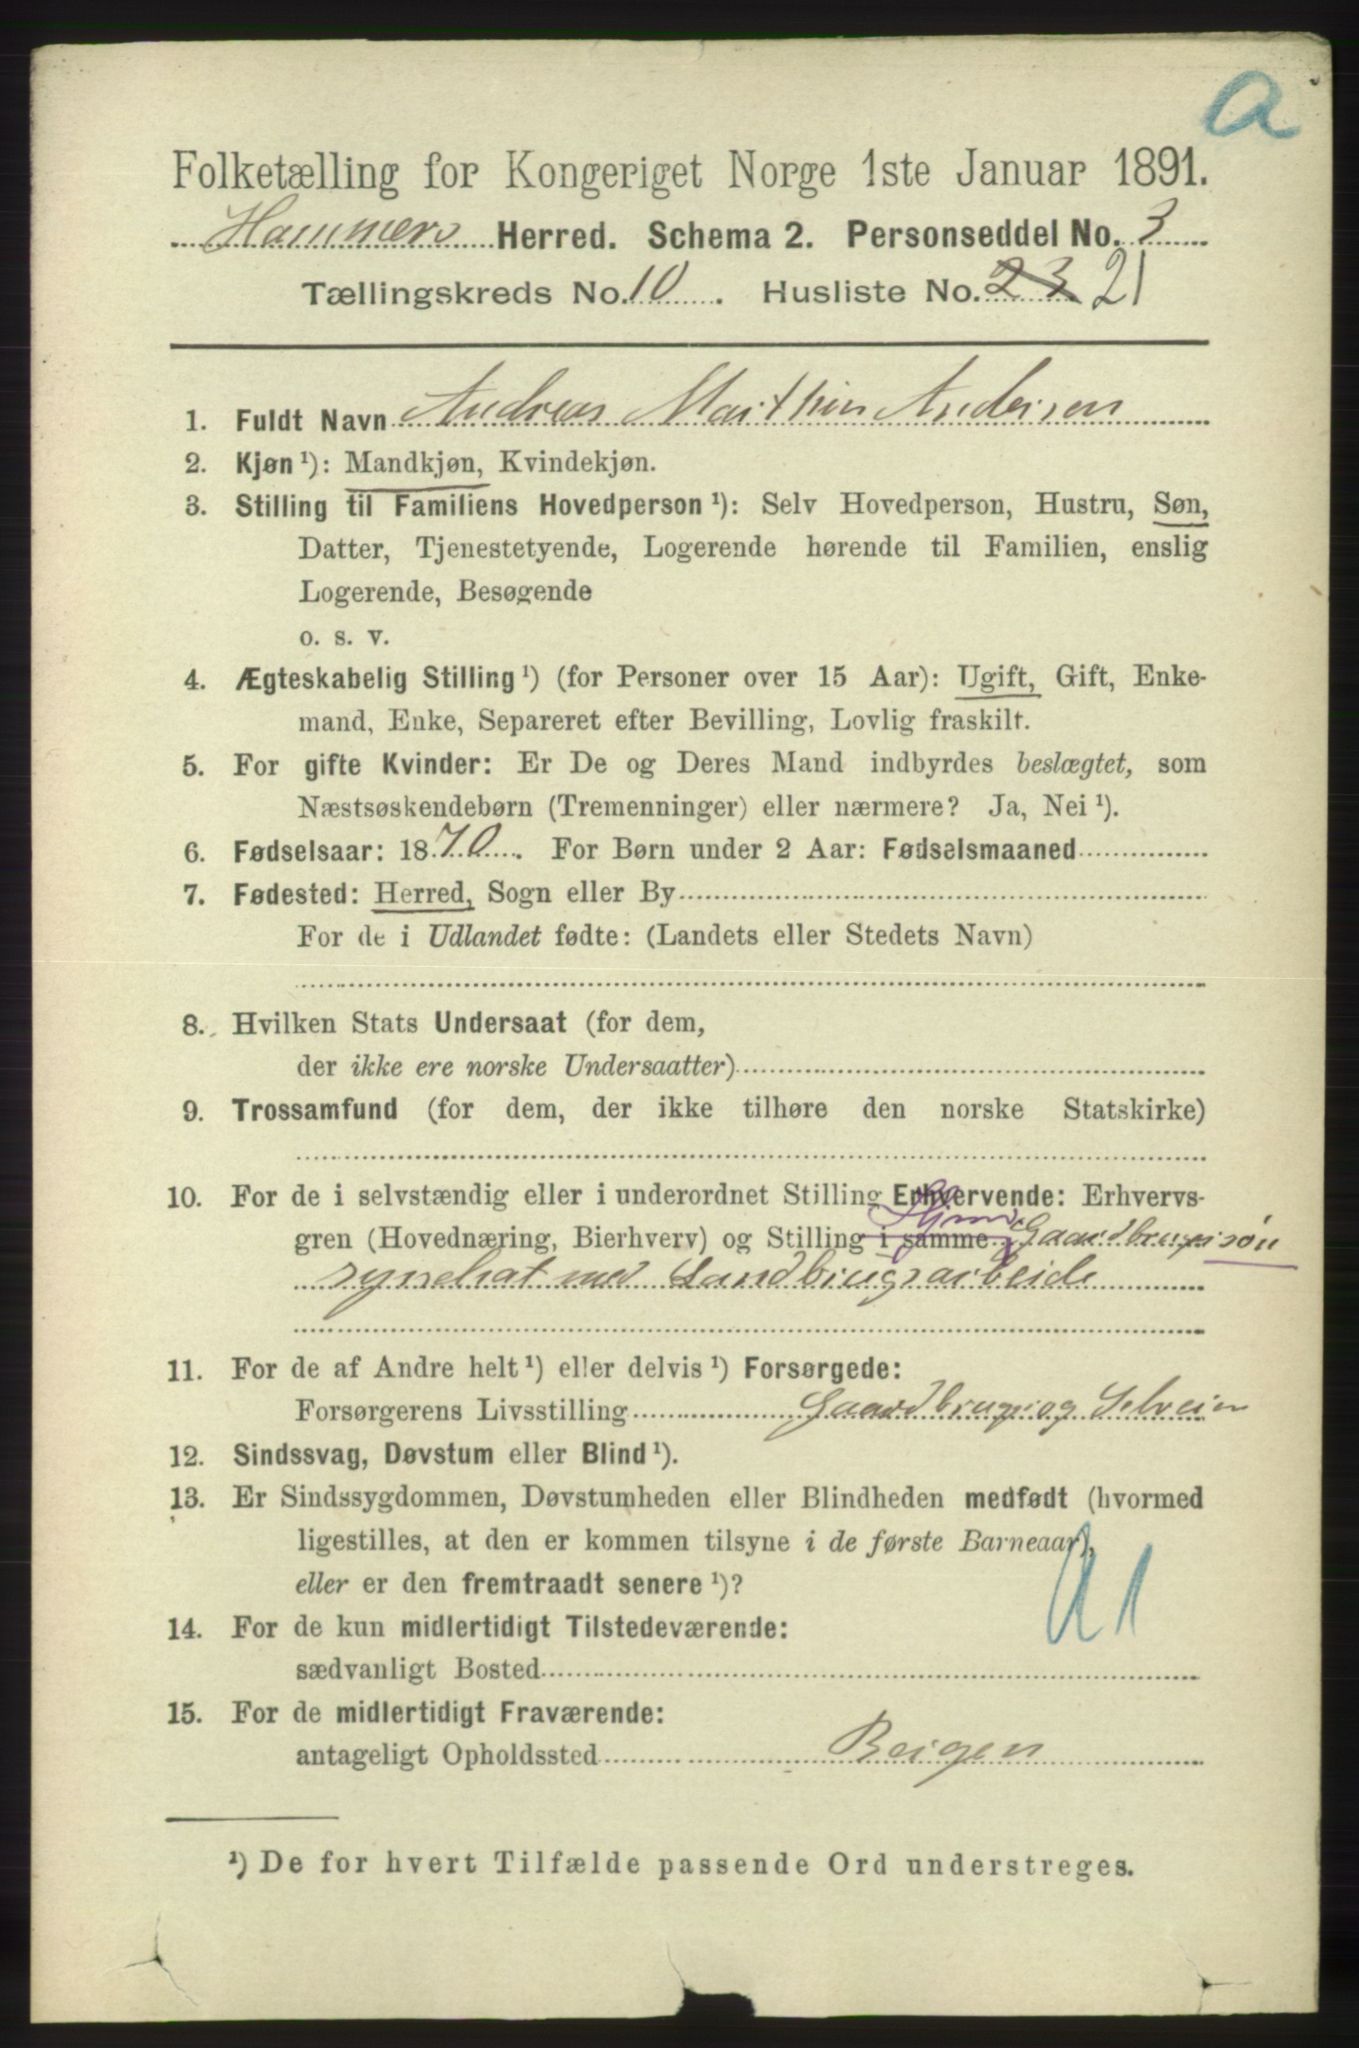 a
Folketælling for Kongeriget Norge 1ste Januar 1891.
Hammers Herred. Schema 2. Personseddel No. 3
Tællingskreds No. 10. Husliste No. 23 21
1. Fuldt Navn Andreas Marthin Andersen
2. Kjøn ¹): Mandkjøn, Kvindekjøn.
3. Stilling til Familiens Hovedperson ¹): Selv Hovedperson, Hustru, Søn,
Datter, Tjenestetyende, Logerende hørende til Familien, enslig
Logerende, Besøgende
o. s. v.
4. Ægteskabelig Stilling ¹) (for Personer over 15 Aar): Ugift, Gift, Enke-
mand, Enke, Separeret efter Bevilling, Lovlig fraskilt.
5. For gifte Kvinder: Er De og Deres Mand indbyrdes beslægtet, som
Næstsøskendebørn (Tremenninger) eller nærmere? Ja, Nei ¹).
6. Fødselsaar: 1870. For Børn under 2 Aar: Fødselsmaaned
7. Fødested: Herred, Sogn eller By
For de i Udlandet fødte: (Landets eller Stedets Navn)
8. Hvilken Stats Undersaat (for dem,
der ikke ere norske Undersaatter)
9. Trossamfund (for dem, der ikke tilhøre den norske Statskirke)
10. For de i selvstændig eller i underordnet Stilling Erhvervende: Erhvervs-
gren (Hovednæring, Bierhverv) og Stilling i samme Gaardbrugersøn
sysselsat med Landbrugsarbeide
11. For de af Andre helt ¹) eller delvis ¹) Forsørgede:
Forsørgerens Livsstilling Gaardbruger og Selveier
12. Sindssvag, Døvstum eller Blind ¹).
13. Er Sindssygdommen, Døvstumheden eller Blindheden medfødt (hvormed
ligestilles, at den er kommen tilsyne i de første Barneaar),
eller er den fremtraadt senere ¹)?
14. For de kun midlertidigt Tilstedeværende:
sædvanligt Bosted
15. For de midlertidigt Fraværende:
antageligt Opholdssted Bergen
¹) De for hvert Tilfælde passende Ord understreges.